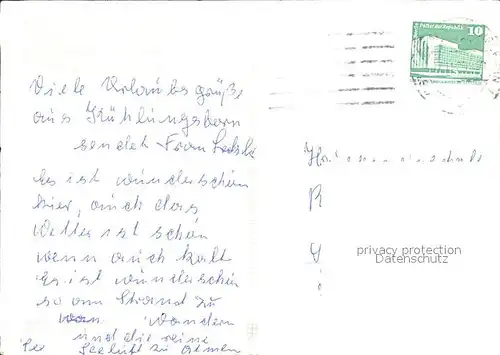 Viele Urlaubsgrüße
aus Kühlungsborn
sendet Frau
Es ist wunderschön
hier, auch das
Wetter ist schön
wenn auch kalt
Es ist wunderschön
so am Strand zu
wandern
und die reine
Seeluft zu atmen
10
privacy protection
Datenschutz